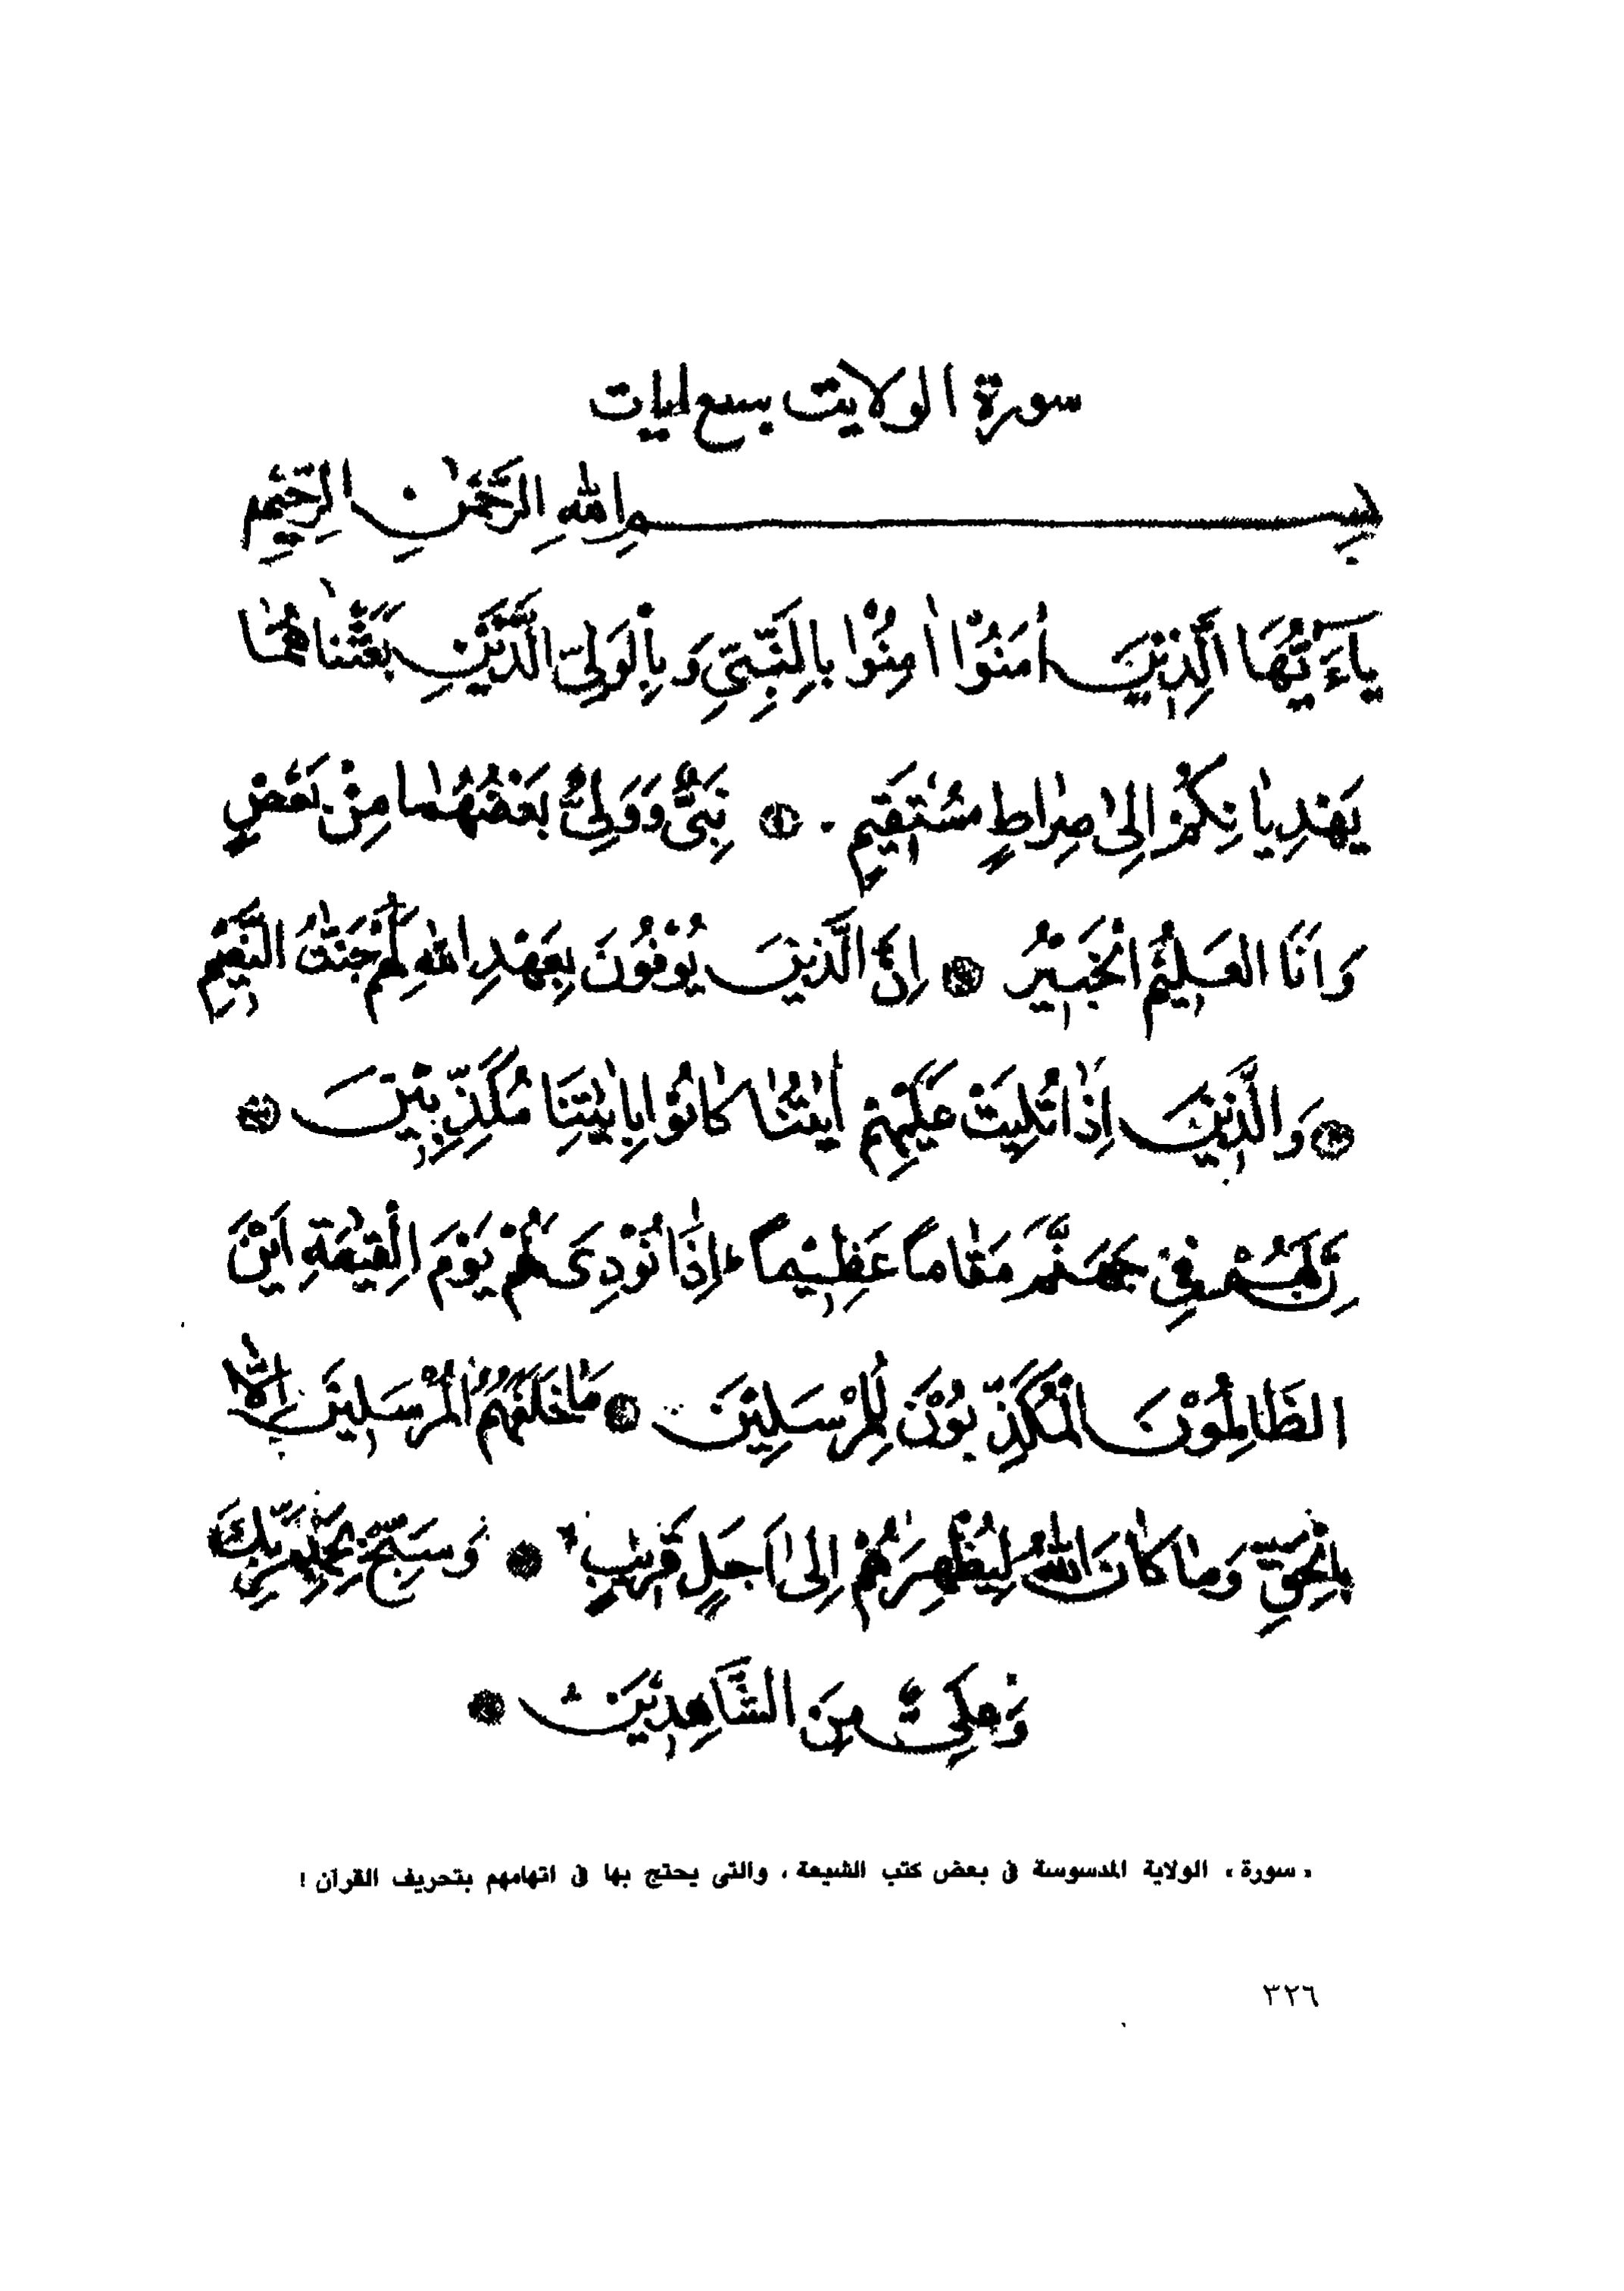 سورة الولايت بسبع ايات
بِسْمِ اللهِ الرَّحْمٰنِ الرَّحِيْمِ
يَاءَيُّهَا الَّذِيْنَ اٰمَنُوْا اٰمِنُوْا بِالنَّبِيِّ وَبِالْوَلِيِّ الَّذَيْنِ بَعَثْنَاهُمَا
يَهْدِيَانِكُمْ اِلىٰ صِرَاطٍ مُسْتَقِيْمٍ . ۝١ نَبِىٌّ وَوَلِىٌّ بَعْضُهُمَا مِنْ بَعْضٍ
وَاَنَا الْعَلِيْمُ الْخَبِيْرُ ۝ اِنَّ الَّذِيْنَ يُوْفُوْنَ بِعَهْدِ اللهِ لَهُمْ جَنّٰتُ النَّعِيْمِ
۝ وَالَّذِيْنَ اِذَا تُلِيَتْ عَلَيْهِمْ اٰيٰتُنَا كَانُوْا بِاٰيٰتِنَا مُكَذِّبِيْنَ ۝
اِنَّ لَهُمْ فِىْ جَهَنَّمَ مَقَامًا عَظِيْمًا اِذَا نُوْدِىَ لَهُمْ يَوْمَ الْقِيٰمَةِ اَيْنَ
الظَّالِمُوْنَ الْمُكَذِّبُوْنَ لِلْمُرْسَلِيْنَ ۝ مَا خَلَفَهُمُ الْمُرْسَلِيْنَ اِلَّا
بِالْحَقِّ وَمَا كَانَ اللهُ لِيُظْهِرَهُمْ اِلىٰ اَجَلٍ قَرِيْبٍ ۝ وَسَبِّحْ بِحَمْدِ رَبِّكَ
وَعَلِىٌّ مِنَ الشَّاهِدِيْنَ ۝
« سورة » الولاية المدسوسة فى بعض كتب الشيعة ، والتى يحتج بها فى اتهامهم بتحريف القرآن !
٣٢٦